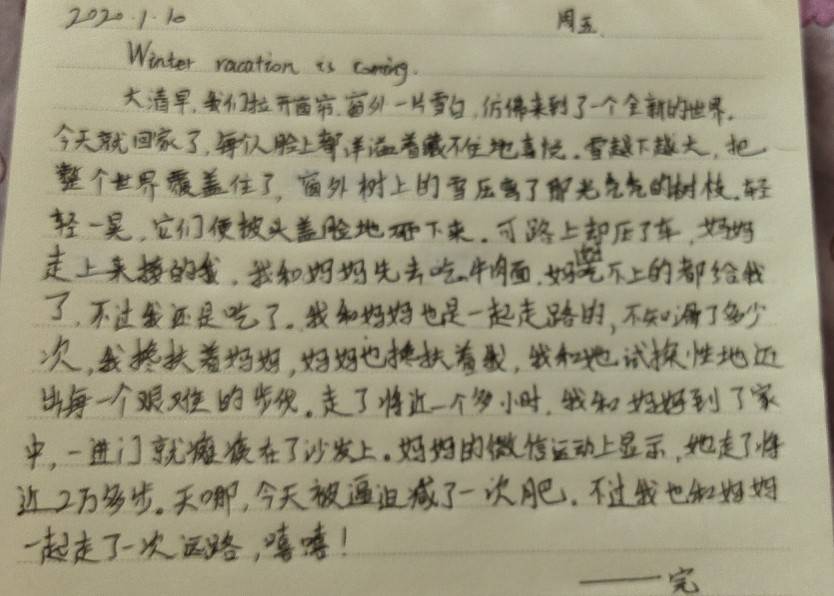 2020.1.10 周五
Winter racation is coming.
大清早,我们拉开窗帘,窗外一片雪白,仿佛来到了一个全新的世界。
今天就回家了,每个人脸上都洋溢着藏不住地喜悦。雪越下越大,把
整个世界覆盖住了,窗外树上的雪压弯了那光秃秃的树枝,轻
轻一晃,它们便披头盖脸地砸下来。可路上却压了车,妈妈
走上来接的我,我和妈妈先去吃牛肉面,妈吃不上的都给我
了,不过我还是吃了。我和妈妈也是一起走路的,不知滑了多少
次,我搀扶着妈妈,妈妈也搀扶着我,我和她试探性地迈
出每一个艰难的步伐。走了将近一个多小时,我和妈妈到了家
中,一进门就瘫痪在了沙发上。妈妈的微信运动上显示,她走了将
近2万多步。天哪,今天被逼迫减了一次肥。不过我也和妈妈
一起走了一次远路,嘻嘻!
——完